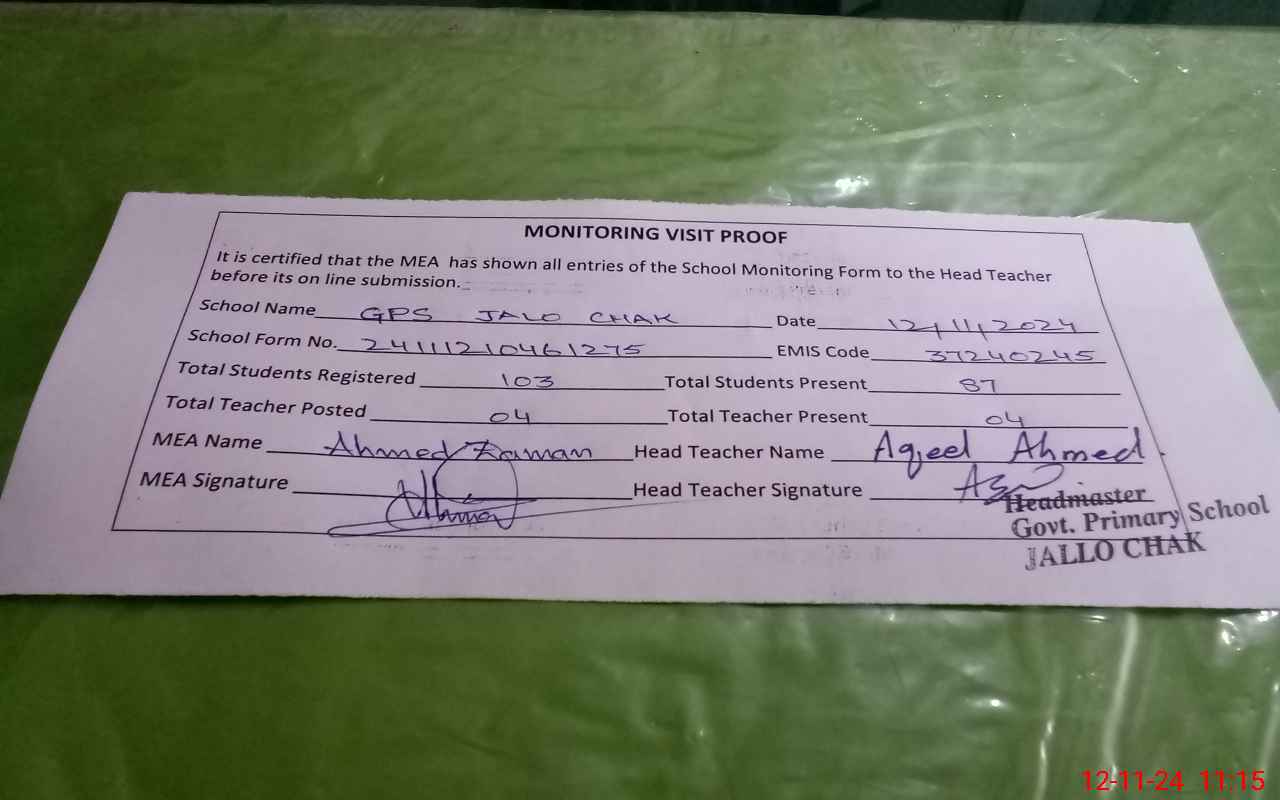 MONITORING VISIT PROOF
It is certified that the MEA has shown all entries of the School Monitoring Form to the Head Teacher
before its on line submission.
School Name GPS JALO CHAK Date 12/11/2024
School Form No. 24111210461275 EMIS Code 37240245
Total Students Registered 103 Total Students Present 87
Total Teacher Posted 04 Total Teacher Present 04
MEA Name Ahmed Zaman Head Teacher Name Aqeel Ahmed
MEA Signature Head Teacher Signature
Headmaster
Govt. Primary School
JALLO CHAK
12-11-24 11:15